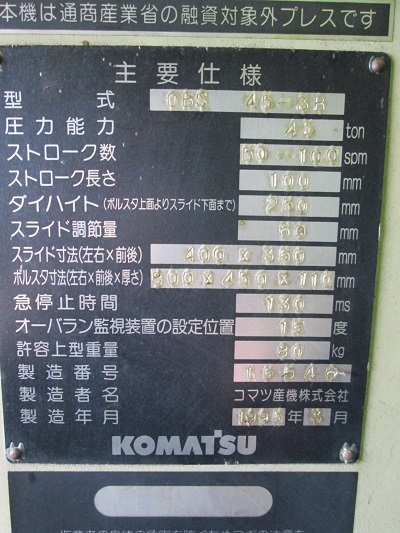 本機は通商産業省の融資対象外プレスです
主要仕様
型式 OBS 45-3R
圧力能力 45 ton
ストローク数 50-100 spm
ストローク長さ 100 mm
ダイハイト(ボルスタ上面よりスライド下面まで) 250 mm
スライド調節量 60 mm
スライド寸法(左右×前後) 400×350 mm
ボルスタ寸法(左右×前後×厚さ) 800×450×110 mm
急停止時間 130 ms
オーバラン監視装置の設定位置 15 度
許容上型重量 80 kg
製造番号
製造者名 コマツ産機株式会社
製造年月 1995年 3月
KOMATSU